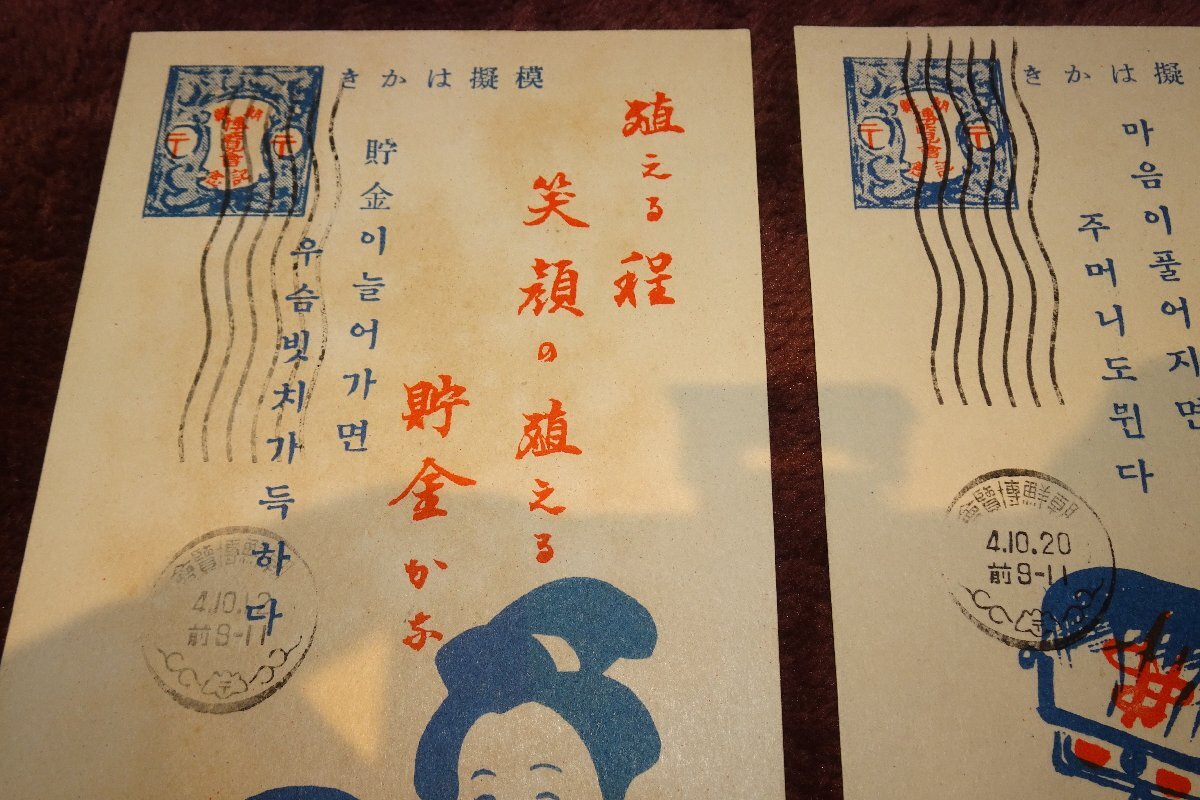 模擬はかき
朝鮮
博覽會
記念
〒 〒
殖える程
笑顔の殖える
貯金かな
貯金이늘어가면
우슴빗치가득하다
朝鮮博覽會
前9-11
擬はかき
朝鮮
博覽會
記念
〒 〒
마음이풀어지면
주머니도뷘다
朝鮮博覽會
4.10.20
前9-11